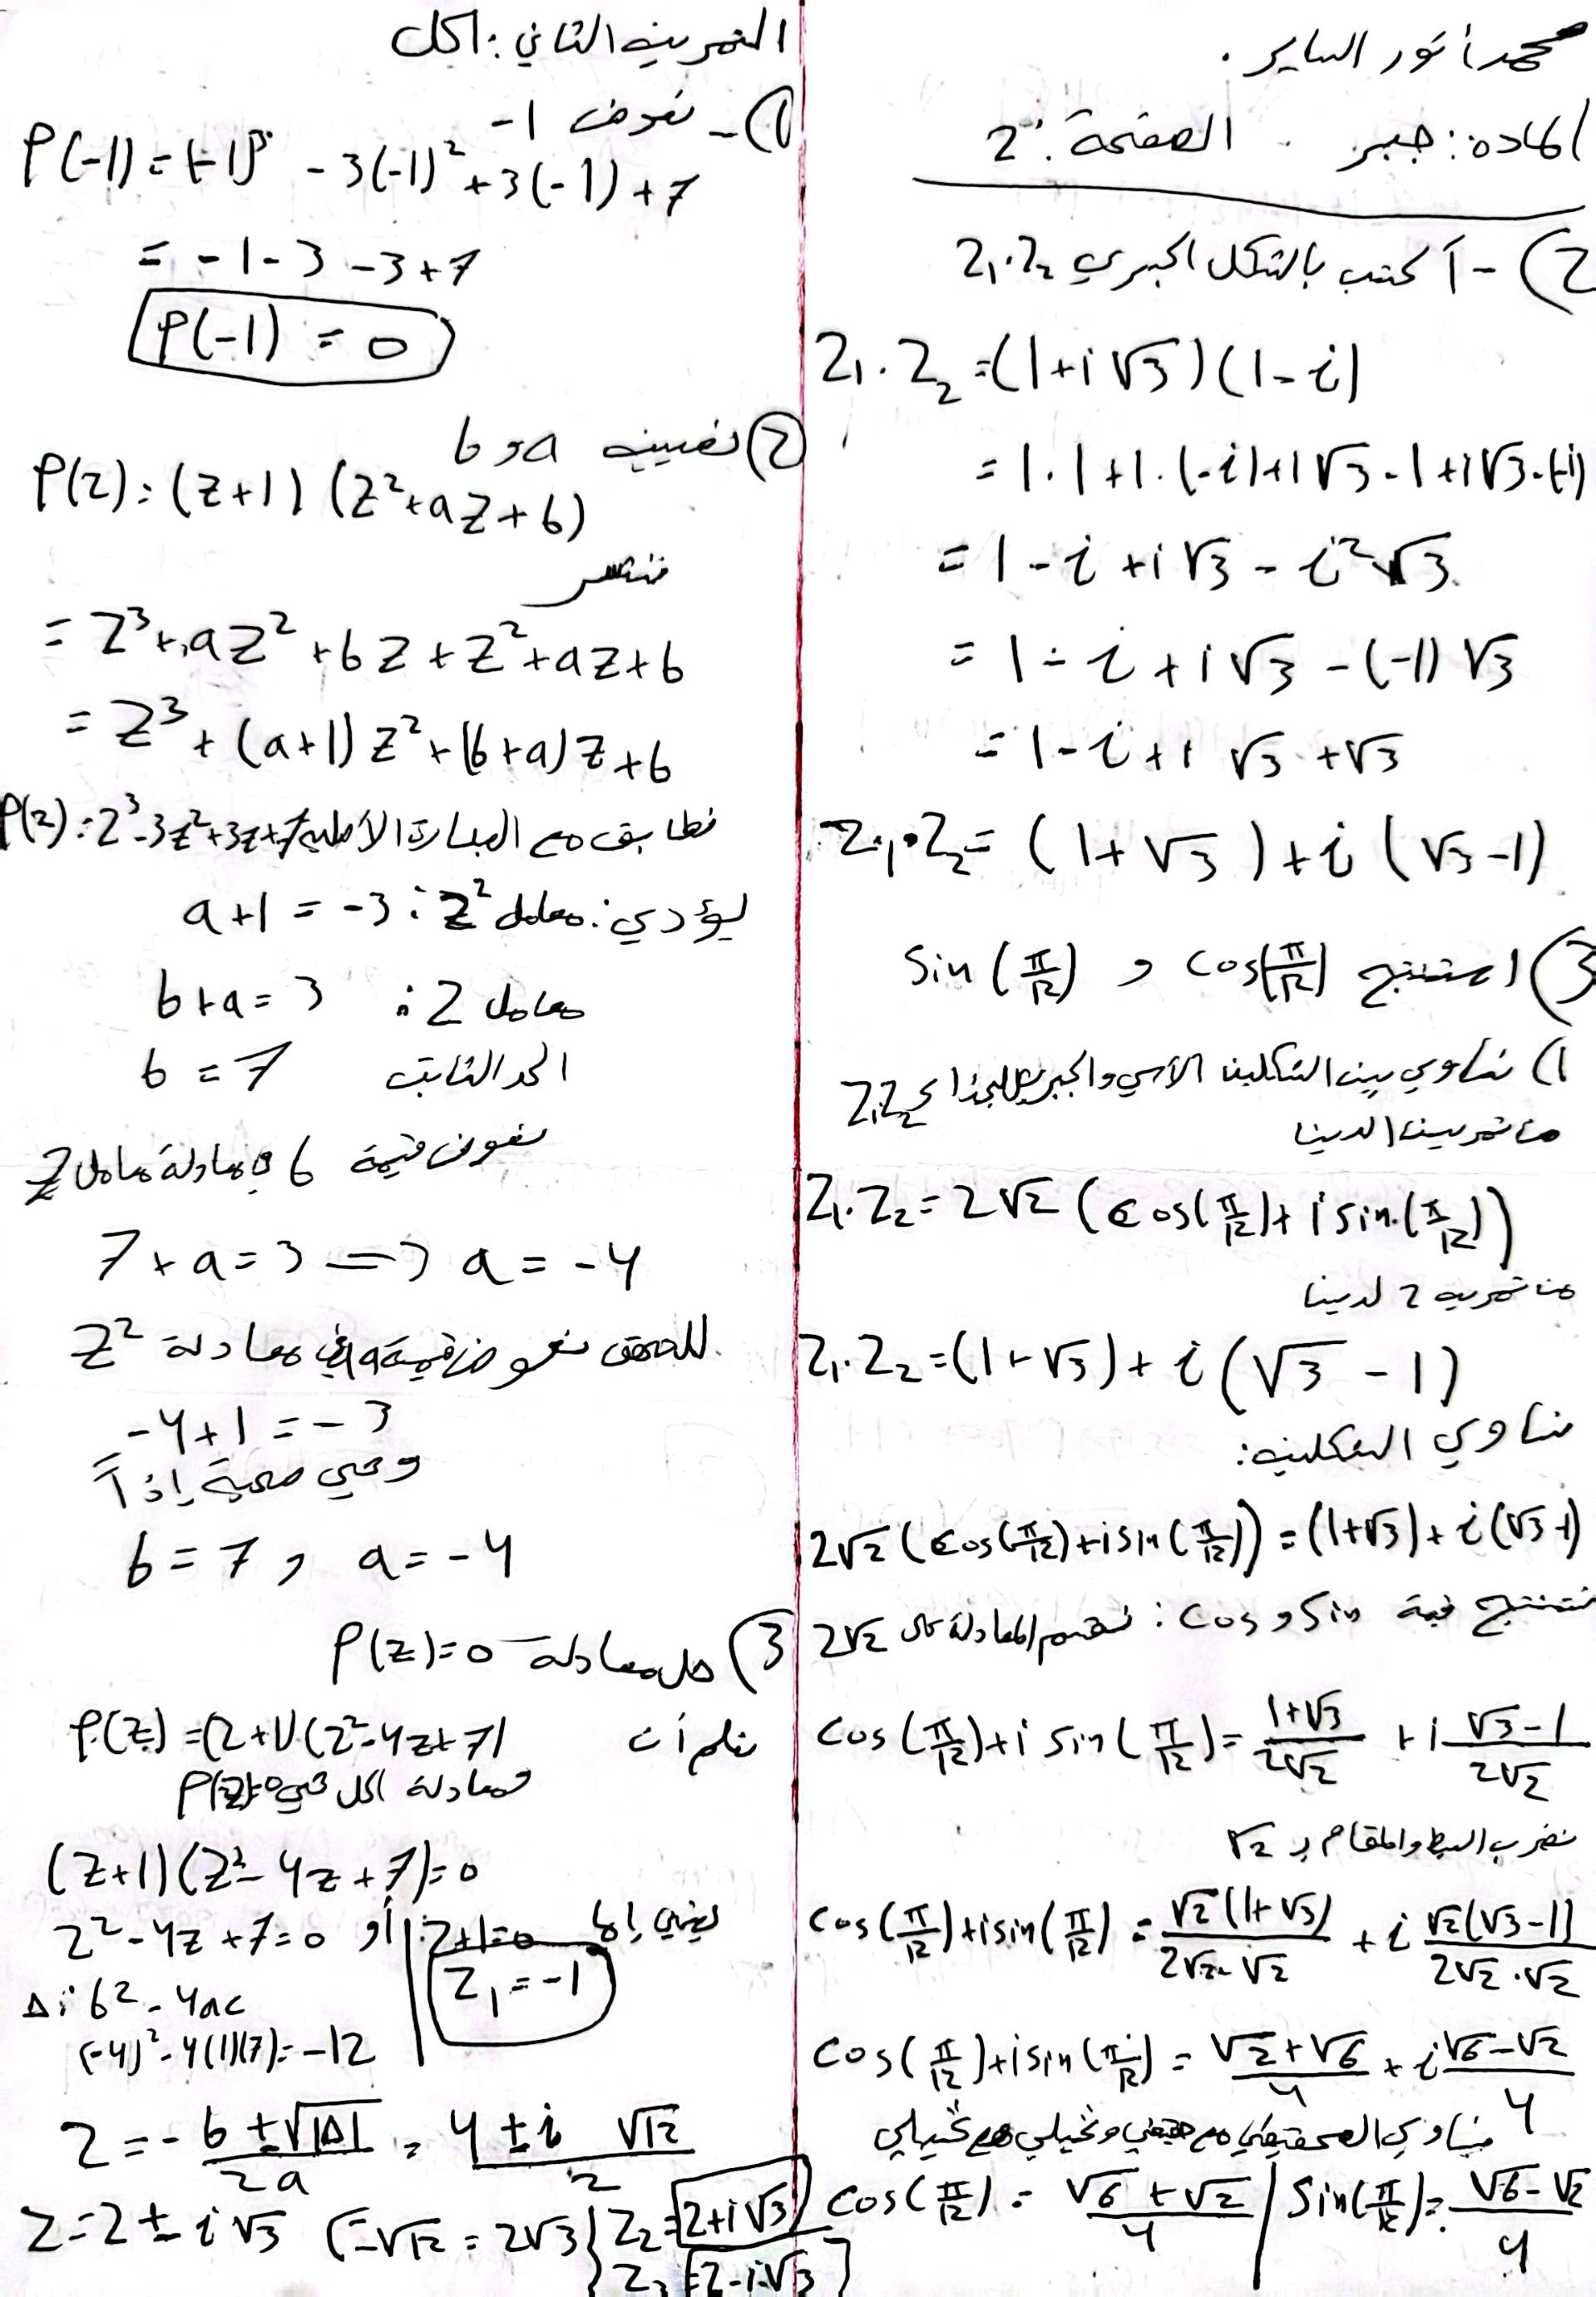 محمد أنور الساير .
المادة: جبر . الصفحة: 2
2) - أكتب بالشكل الجبري Z₁.Z₂
Z₁.Z₂ = (1+i√3)(1-i)
= 1.1+1.(-i)+i√3.1+i√3.(-i)
= 1-i+i√3-i²√3
= 1-i+i√3-(-1)√3
= 1-i+i√3+√3
Z₁.Z₂ = (1+√3)+i(√3-1)
3) استنتج cos(π/12) و sin(π/12)
1) نساوي بين الشكلين الأسي والجبري للجداء Z₁Z₂
من تمرين 1 لدينا
Z₁.Z₂ = 2√2 (cos(π/12)+i sin(π/12))
من تمرين 2 لدينا
Z₁.Z₂ = (1+√3)+i(√3-1)
نساوي الشكلين:
2√2 (cos(π/12)+i sin(π/12)) = (1+√3)+i(√3-1)
نستنتج قيمة sin و cos : نقسم المعادلة على 2√2
cos(π/12)+i sin(π/12) = (1+√3)/(2√2) + i (√3-1)/(2√2)
نضرب البسط والمقام بـ √2
cos(π/12)+i sin(π/12) = √2(1+√3)/(2√2.√2) + i √2(√3-1)/(2√2.√2)
cos(π/12)+i sin(π/12) = (√2+√6)/4 + i (√6-√2)/4
نساوي الحقيقي مع حقيقي وتخيلي مع تخيلي
cos(π/12) = (√6+√2)/4 / sin(π/12) = (√6-√2)/4
التمرين الثاني: الحل
1) - نعوض -1
P(-1) = (-1)³ - 3(-1)² + 3(-1) + 7
= -1-3-3+7
P(-1) = 0
2) تعيين a و b
P(z) = (z+1)(z²+az+b)
ننشر
= z³+az²+bz+z²+az+b
= z³+(a+1)z²+(b+a)z+b
نطابق مع العبارة الأصلية P(z) = z³-3z²+3z+7
يؤدي: معامل z² : a+1 = -3
معامل z : b+a = 3
الحد الثابت b = 7
نعوض قيمة b في معادلة معامل z
7+a = 3 => a = -4
للتحقق نعوض قيمة a في معادلة z²
-4+1 = -3
وهي صحيحة إذاً
b = 7 , a = -4
3) حل معادلة P(z)=0
نعلم أن P(z) = (z+1)(z²-4z+7)
فمعادلة الحل هي P(z)=0
(z+1)(z²-4z+7)=0
يعني إما z+1=0 أو z²-4z+7=0
Z₁ = -1
Δ: b²-4ac
(-4)²-4(1)(7) = -12
Z = (-b±√|Δ|)/2a = (4±i√12)/2
Z = 2±i√3 (=√12 = 2√3) Z₂ = 2+i√3
Z₃ = 2-i√3